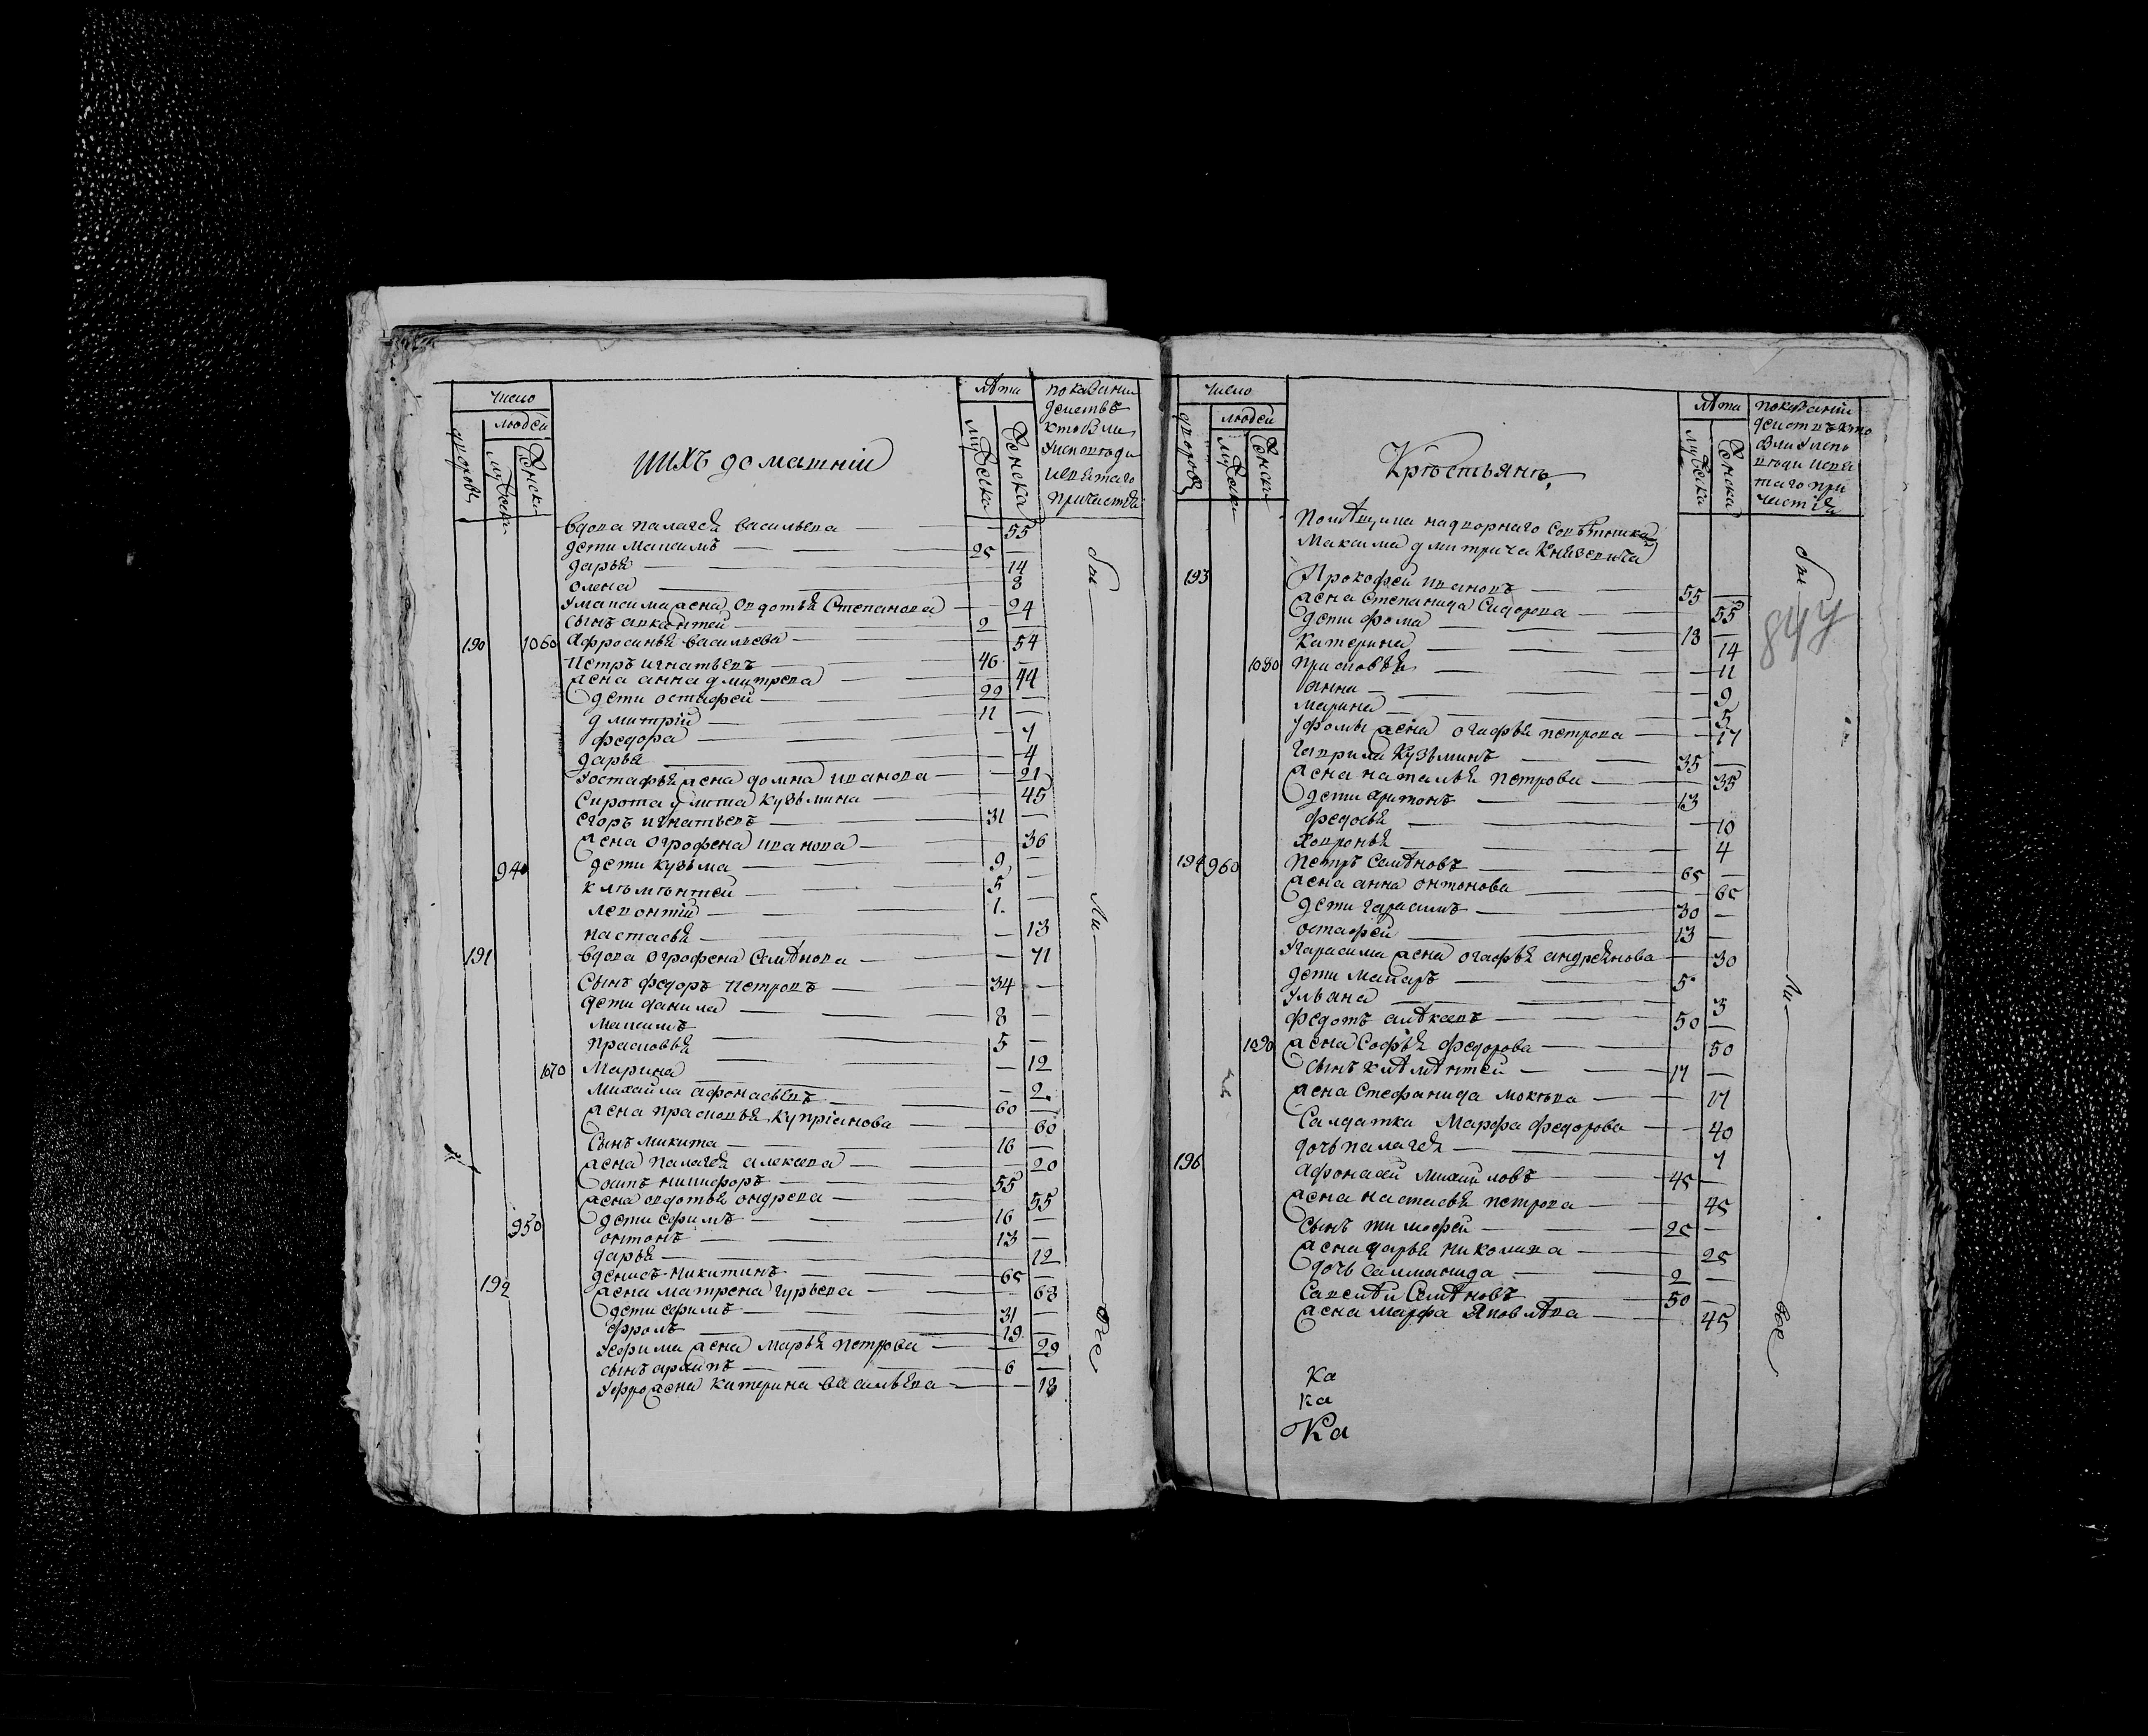 число
людей
дворовъ
мужска
женска
ихъ домашніи
лѣта
мужска
женска
показаніи
действъ
кто были
у исповеди
и святаго
причастія
190
1060
940
191
1070
950
192
вдова палагея васильева — 55
дети максимъ — 25 —
дарья — 14
олена — 8
у максима жена овдотья Степанова — 24
сынъ авкантей — 2 —
Афросинья васильева — 54
Петръ игнатьевъ — 46 —
жена анна дмитрева — 44
дети остафей — 22
дмитрій — 11 —
федора — 7
дарья — 4
у остафья жена домна иванова — 21
Сирота улита кузьмина — 45
егоръ игнатьевъ — 31 —
жена огрофена иванова — 36
дети кузьма — 9 —
клементей — 5 —
леонтій — 1
настасья — 13
вдова огрофена Семѣнова — 71
Сынъ федоръ петровъ — 34 —
дети данила — 8 —
максимъ — 5 —
прасковья — 12
Марина — 2
михайла афонасьевъ — 60 —
жена прасковья купріянова — 60
Сынъ микита — 16 —
жена палагея алексева — 20
осипъ никифоръ — 55
жена овдотья ондрева — 55
дети ефимъ — 16 —
онтонъ — 13 —
дарья — 12
денисъ никитинъ — 65 —
жена матрена гурьева — 63
дети ефимъ — 31 —
фролъ — 19 —
у ефима жена марья петрова — 29
сынъ архипъ — 6 —
у фрола жена катерина васильева — 18
бы
ли
все
число
людей
дворовъ
мужска
женска
Крестьянъ
лѣта
мужска
женска
показаніи
действъ кто
были у испо
веди и свя
таго при
частія
193
1080
194
960
1090
196
Помѣщика надворнаго Совѣтника
Максима дмитрича Князевича
Прокофей ивановъ — 55 —
жена степанида Сидорова — 55
дети фома — 18 —
катерина — 14
прасковья — 11
анна — 9
марина — 5
у фомы жена огафья петрова — 17
гаврила Кузьминъ — 35 —
жена наталья петрова — 35
дети артонъ — 13
федосья — 10
ховронья — 4
петръ Семѣновъ — 65 —
жена анна онтонова — 65
дети гарасимъ — 30 —
остафей — 13 —
у гарасима жена огафья андреянова — 30
дети макаръ — 5
ульяна — 3
федотъ алѣксевъ — 50 —
жена Софья федорова — 50
сынъ клѣмѣнтей — 17 —
жена Стефанида мокѣева — 17
Салдатка Марфа федорова — 40
дочь палагея — 7
Афонасей михайловъ — 45 —
жена настасья петрова — 45
Сынъ тимофей — 25 —
жена дарья николаева — 25
дочь салманида — 2 —
Савелѣй Семѣновъ — 50 —
жена марфа яковлѣва — 45
бы
844
ли
все
Ка
ка
Ка